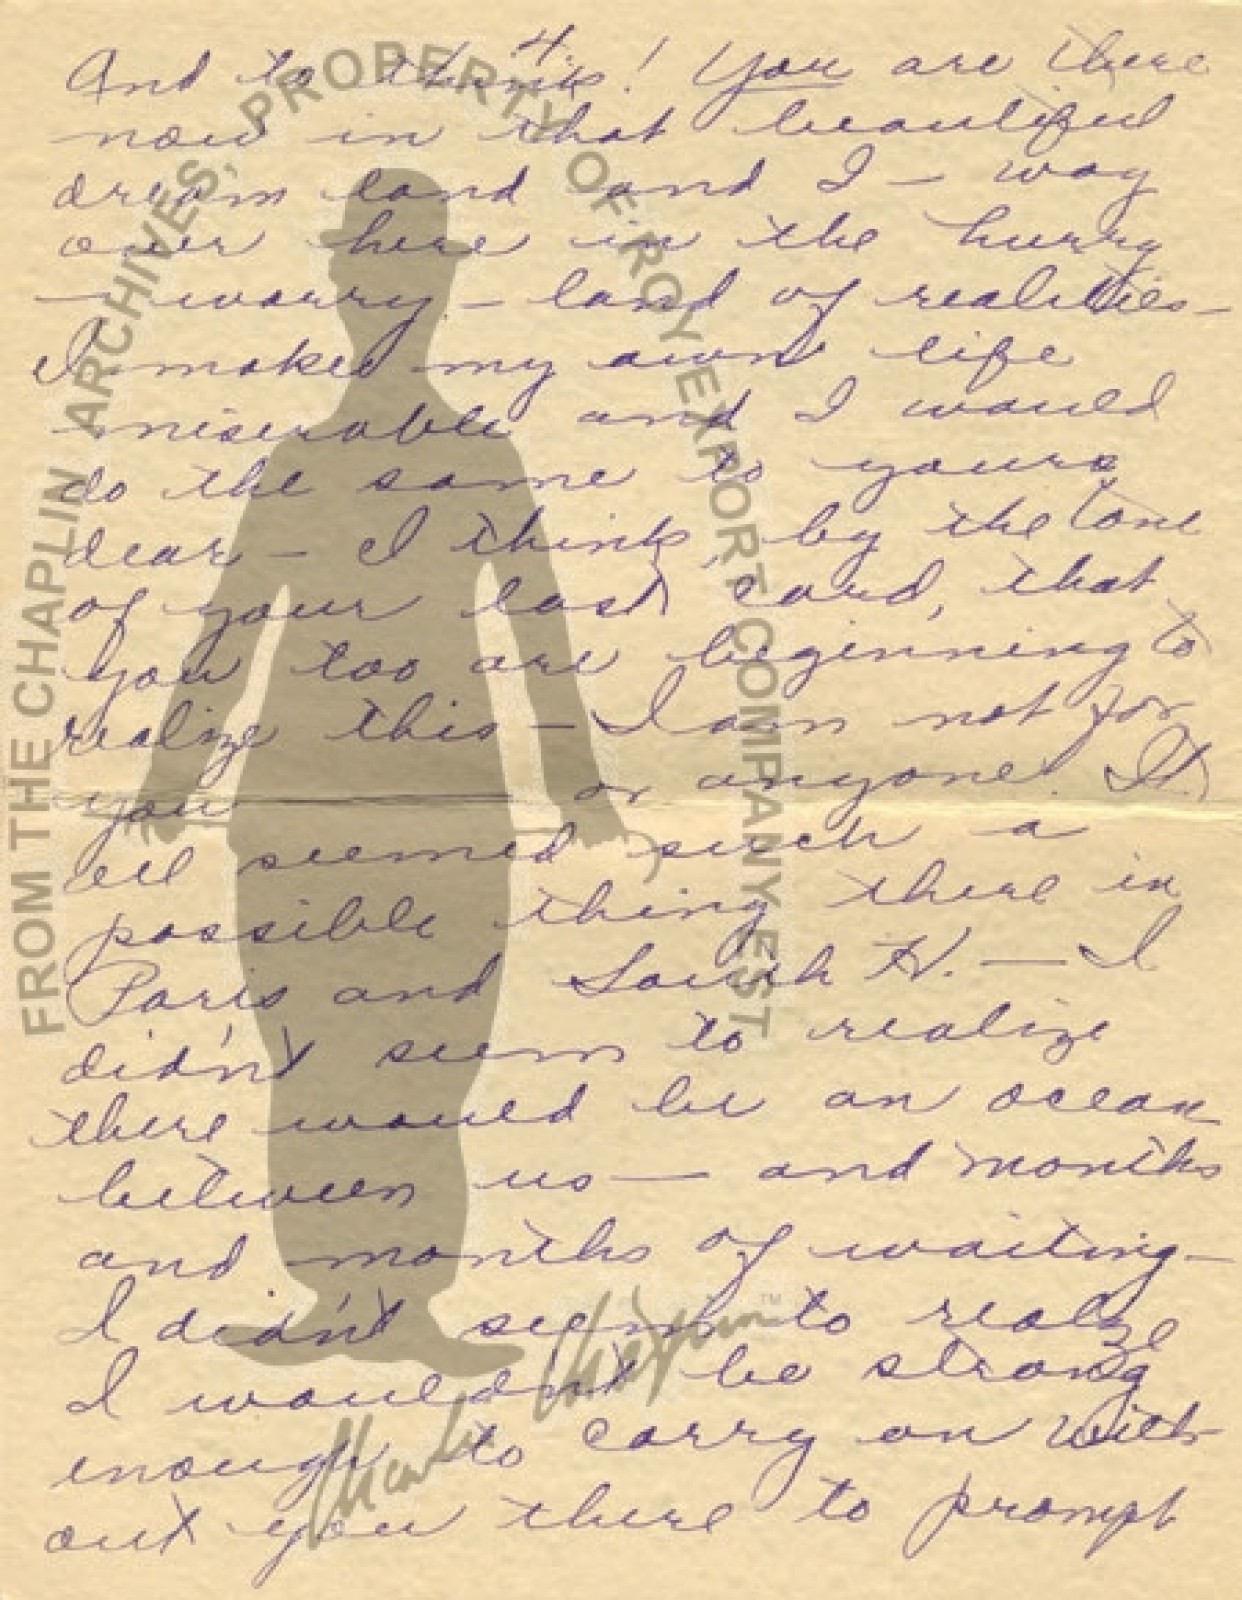 4.
And to think! You are there
now in that beautiful
dream land and I – way
over here in the hurry
– worry – land of realities –
I make my own life
miserable and I would
do the same to yours
dear – I think, by the tone
of your last card, that
you too are beginning to
realize this – I am not for
you or anyone. It
all seemed such a
possible thing there in
Paris and South H. – I
didn't seem to realize
there would be an ocean
between us – and months
and months of waiting –
I didn't seem to realze
I wouldn't be strong
enough to carry on with-
out you there to prompt
FROM THE CHAPLIN ARCHIVES, PROPERTY OF ROY EXPORT COMPANY EST
Charlie Chaplin™